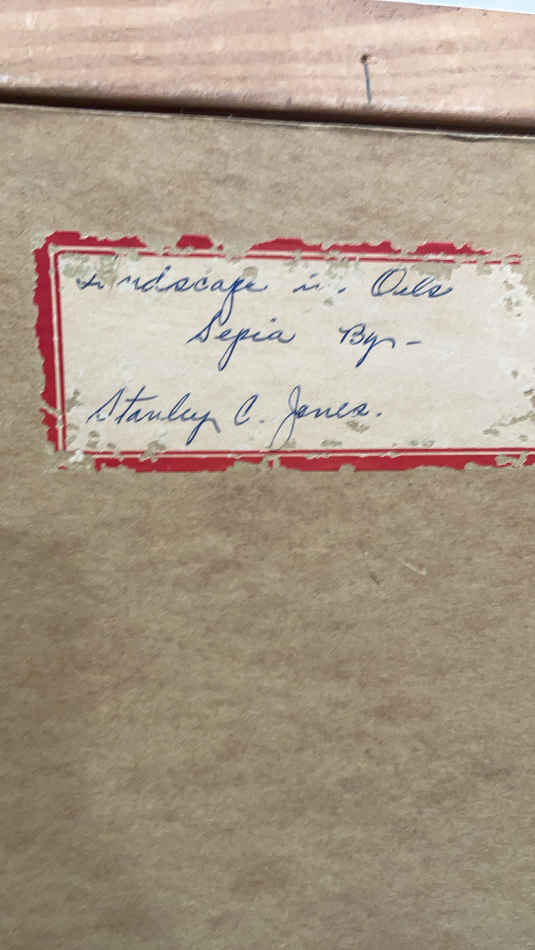 Landscape in Oils
Sepia By-
Stanley C. Jones.